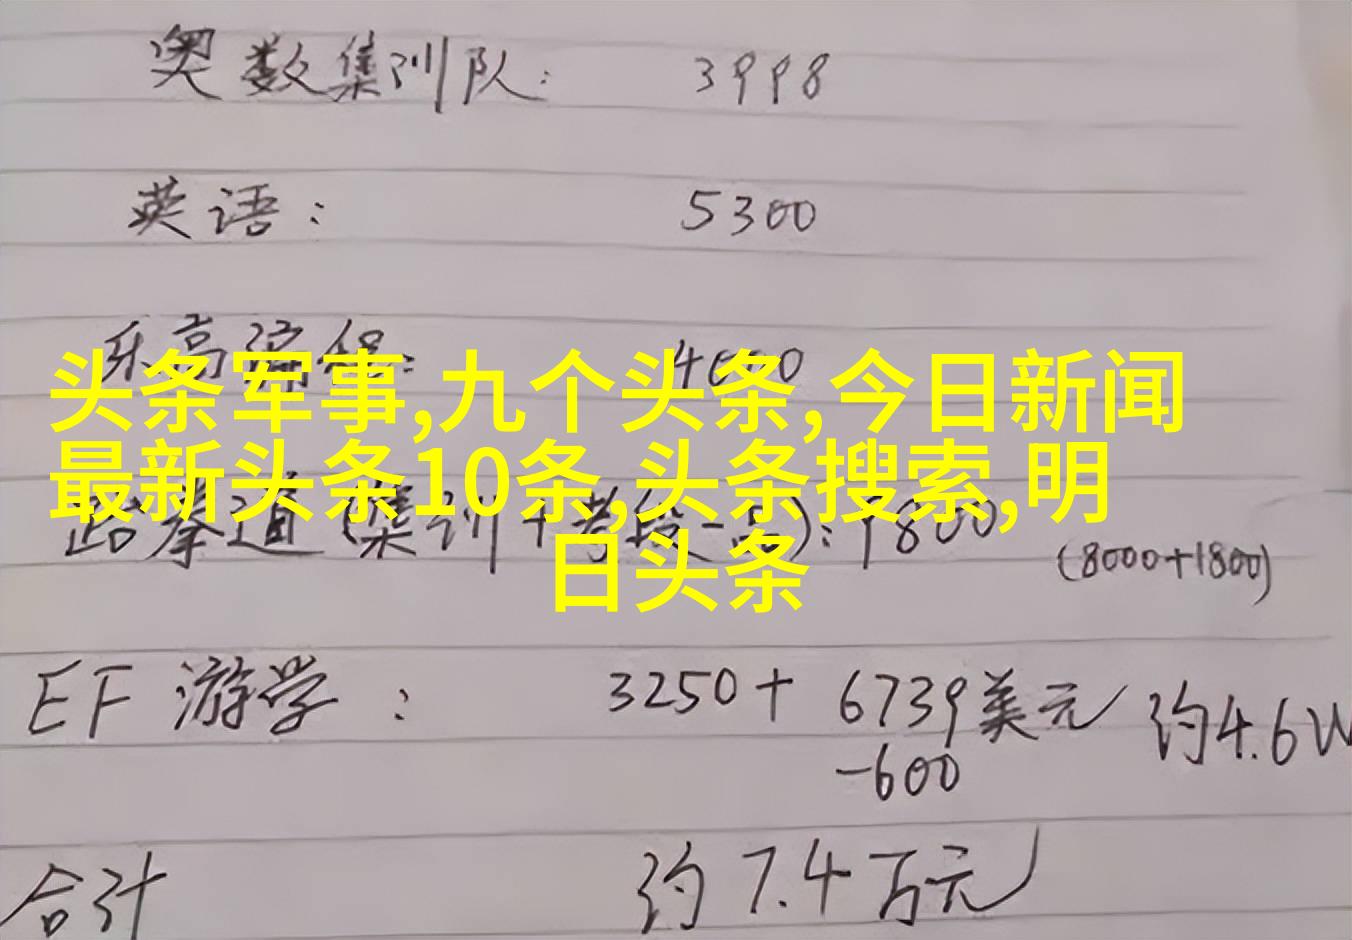 奥数集训队: 3998
英语: 5300
乐高编程: 4000
头条军事,九个头条,今日新闻
最新头条10条,头条搜索,明
日头条
跆拳道(集训+考段一品):9800
(8000+1800)
EF 游学: 3250+ 6739美元 约4.6W
-600
合计 约7.4万元